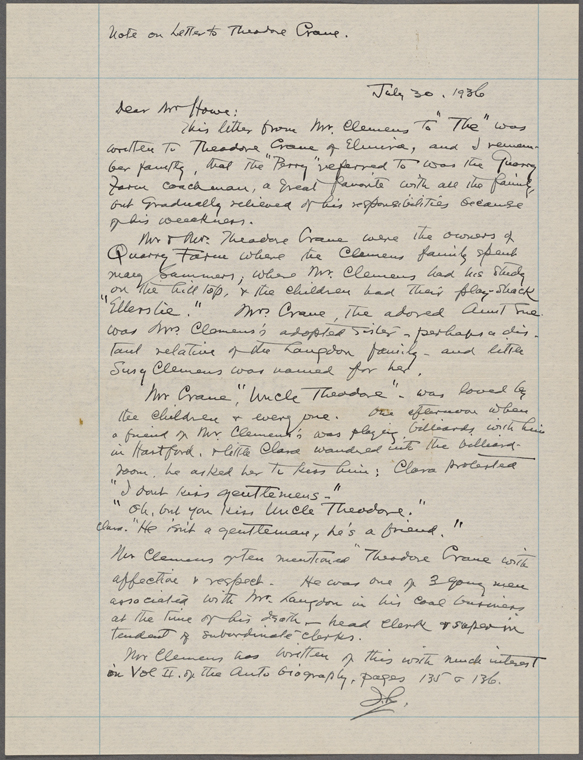 Note on Letter to Theodore Crane.
July 30. 1936
Dear Mr Howe:
This letter from Mr. Clemens to "The" was
written to Theodore Crane of Elmira, and I remem-
ber faintly, that the "Perry" referred to was the Quarry
Farm coachman, a great favorite with all the family,
but gradually relieved of his responsibilities because
of his weeekness.
Mr & Mrs. Theodore Crane were the owners of
Quarry Farm where the Clemens family spent
many summers, where Mr. Clemens had his study
on the hill top, & the children had their play-shack
"Ellerslie." Mrs Crane, the adored Aunt Sue
was Mrs Clemens's adopted sister - perhaps a dis-
tant relative of the Langdon family - and little
Susy Clemens was named for her.
Mr Crane, "Uncle Theodore" - was loved by
the children & every one. One afternoon when
a friend of Mr. Clemens's was playing billiards with him
in Hartford, & little Clara wandered into the billiard-
room, he asked her to kiss him; Clara protested
"I dont kiss gentlemens -"
"Oh, but you kiss Uncle Theodore."
Clara. "He isn't a gentleman, he's a friend."
Mr Clemens often mentioned Theodore Crane with
affection & respect. He was one of 3 young men
associated with Mr. Langdon in his coal business
at the time of his death - head clerk & superin
tendent of subordinate clerks.
Mr Clemens has written of this with much interest
in Vol II. of the Auto biography, pages 135 & 136.